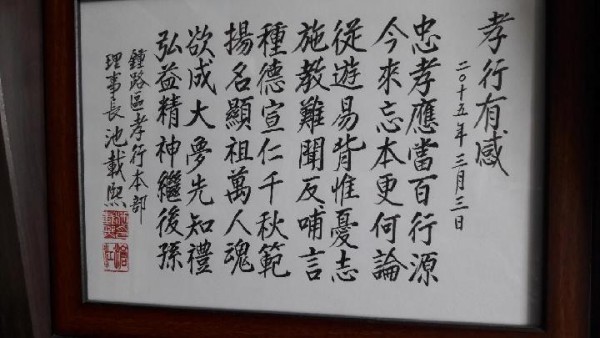 孝行有感
二〇十五年三月三日
忠孝應當百行源
今來忘本更何論
從遊易背惟憂志
施教難聞反哺言
種德宣仁千秋範
揚名顯祖萬人魂
欲成大夢先知禮
弘益精神繼後孫
鍾路區孝行本部
理事長池載熙